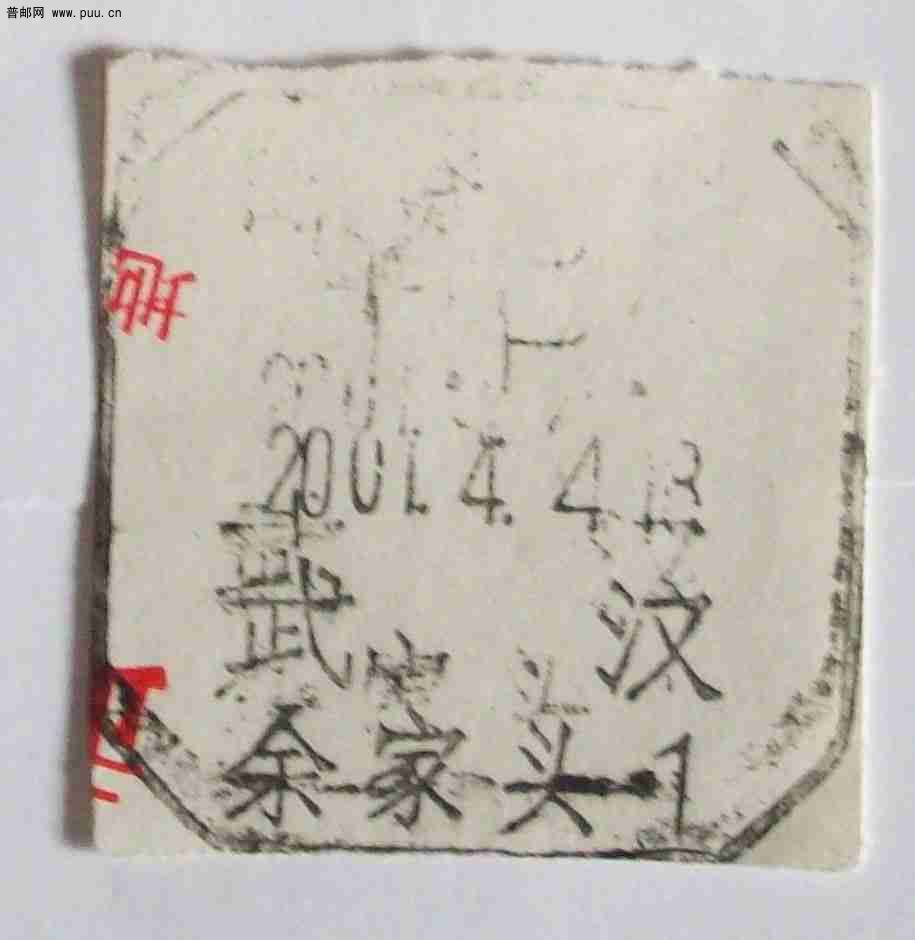 普邮网 www.puu.cn
地
2001.4.4
武 汉
余家头-1